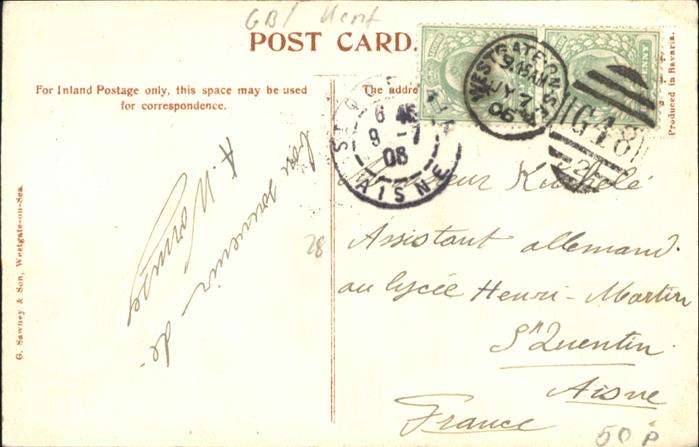 GB/ Kent
POST CARD.
For Inland Postage only, this space may be used
for correspondence.
The addre
Produced in Bavaria.
G. Sawney & Son, Westgate-on-Sea.
WESTGATE-ON-SEA
9.15AM
JY 7
06
G48
2
ST QUENTIN
6 45
9 -7
06
AISNE
Bon souvenir de
A.
28
Monsieur
Assistant allemand
au lycée Henri-Martin
St Quentin.
Aisne
France
50 p